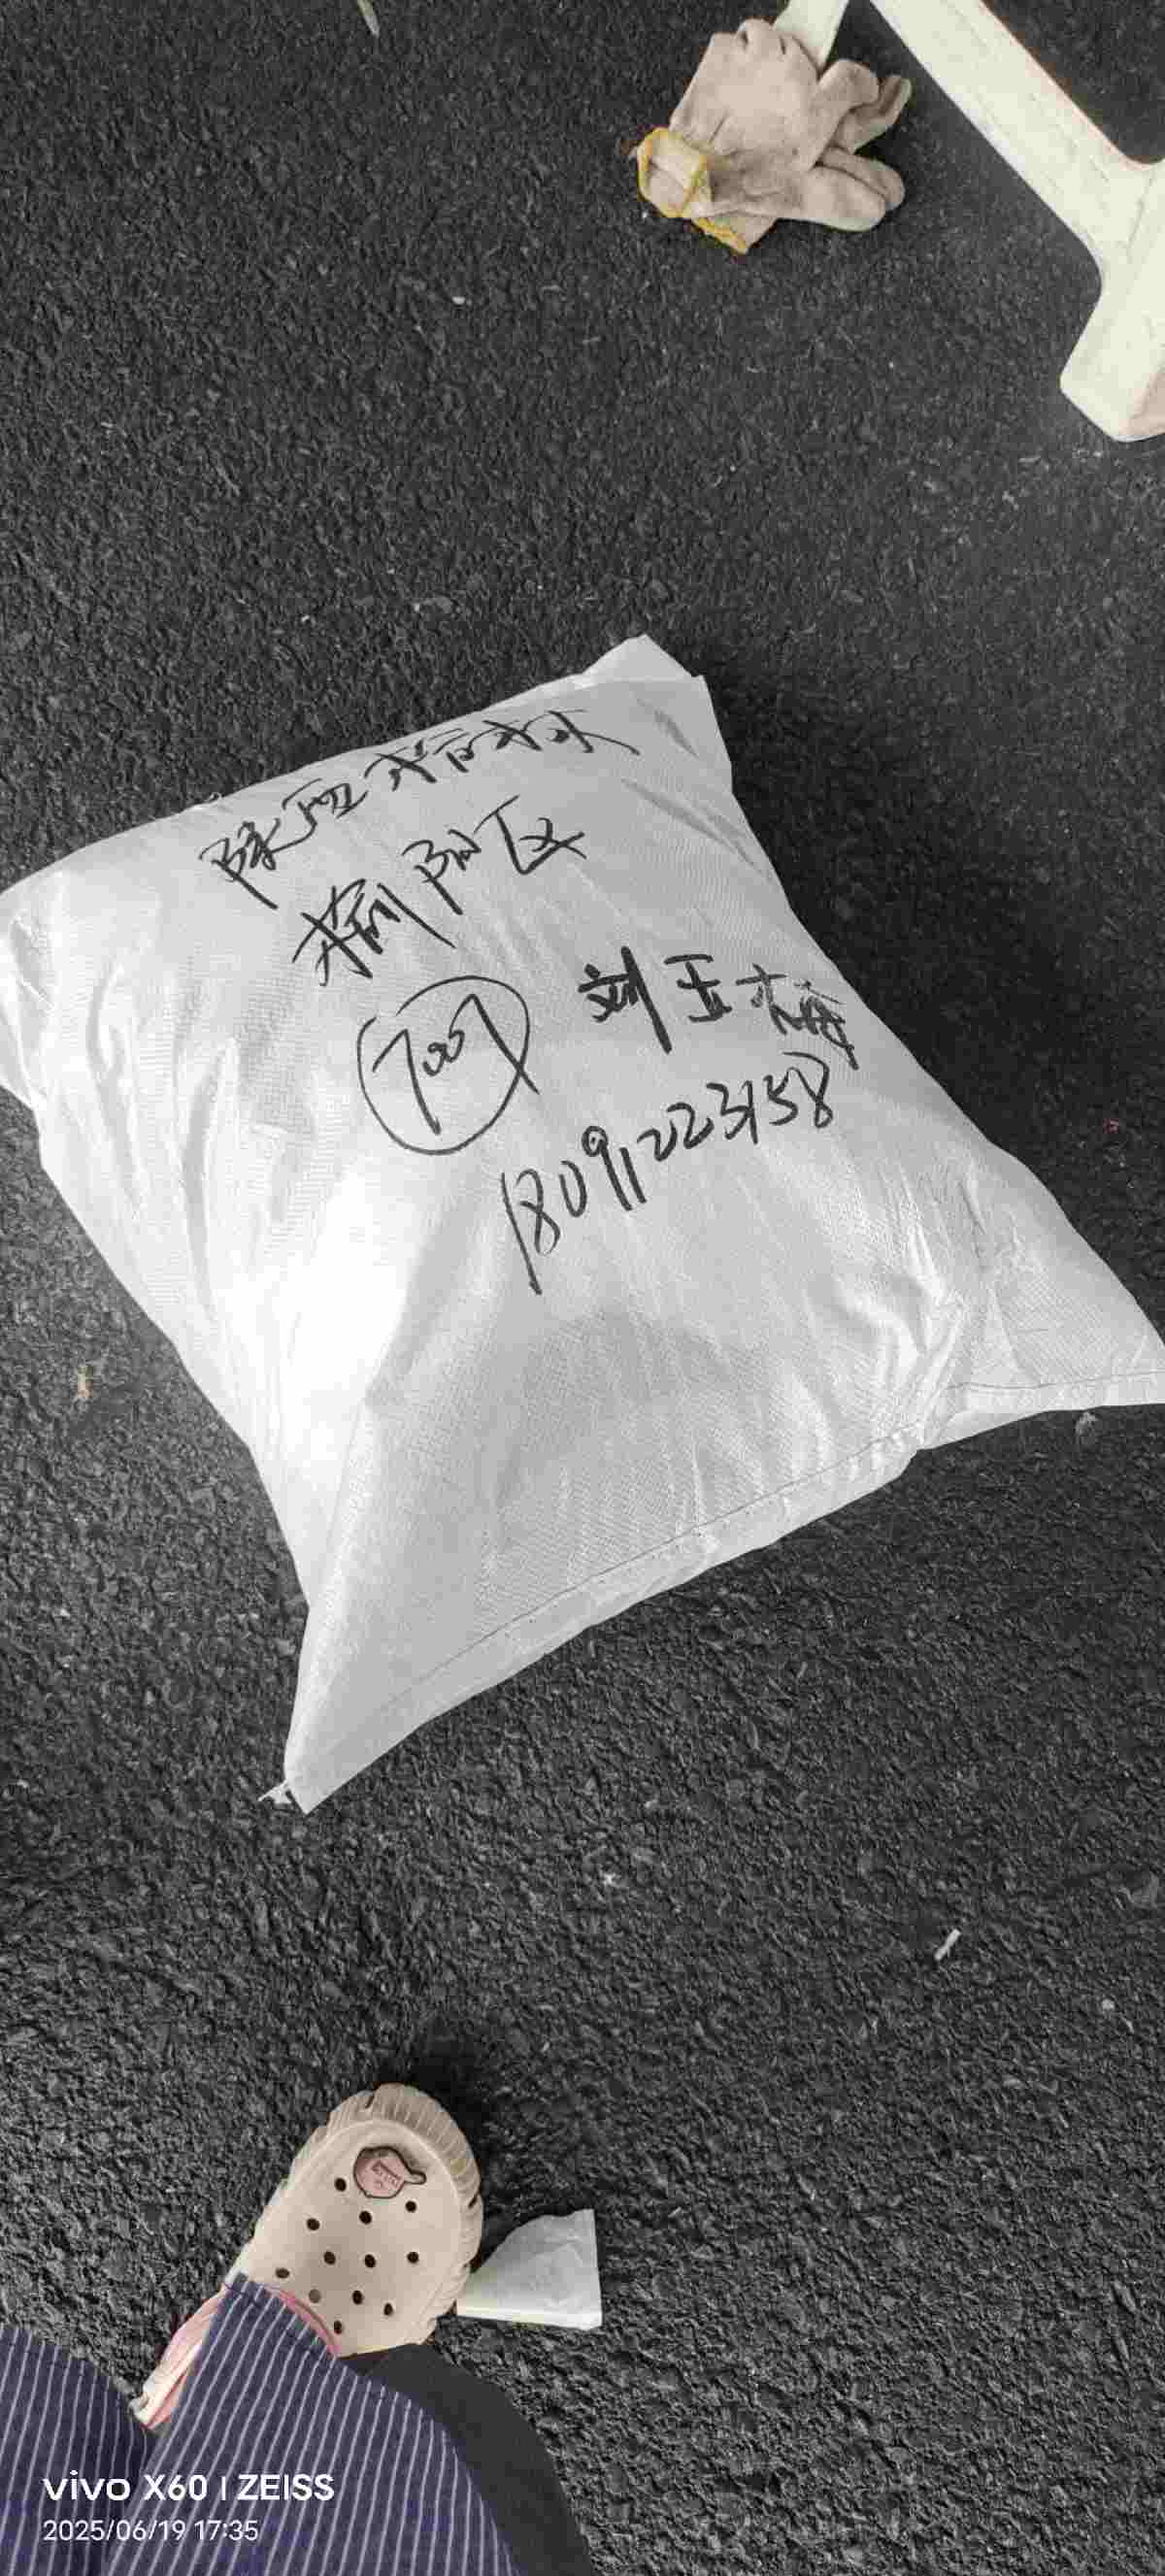 陕西省榆林
榆阳区
700
刘玉梅
18091223158
vivo X60 | ZEISS
2025/06/19 17:35